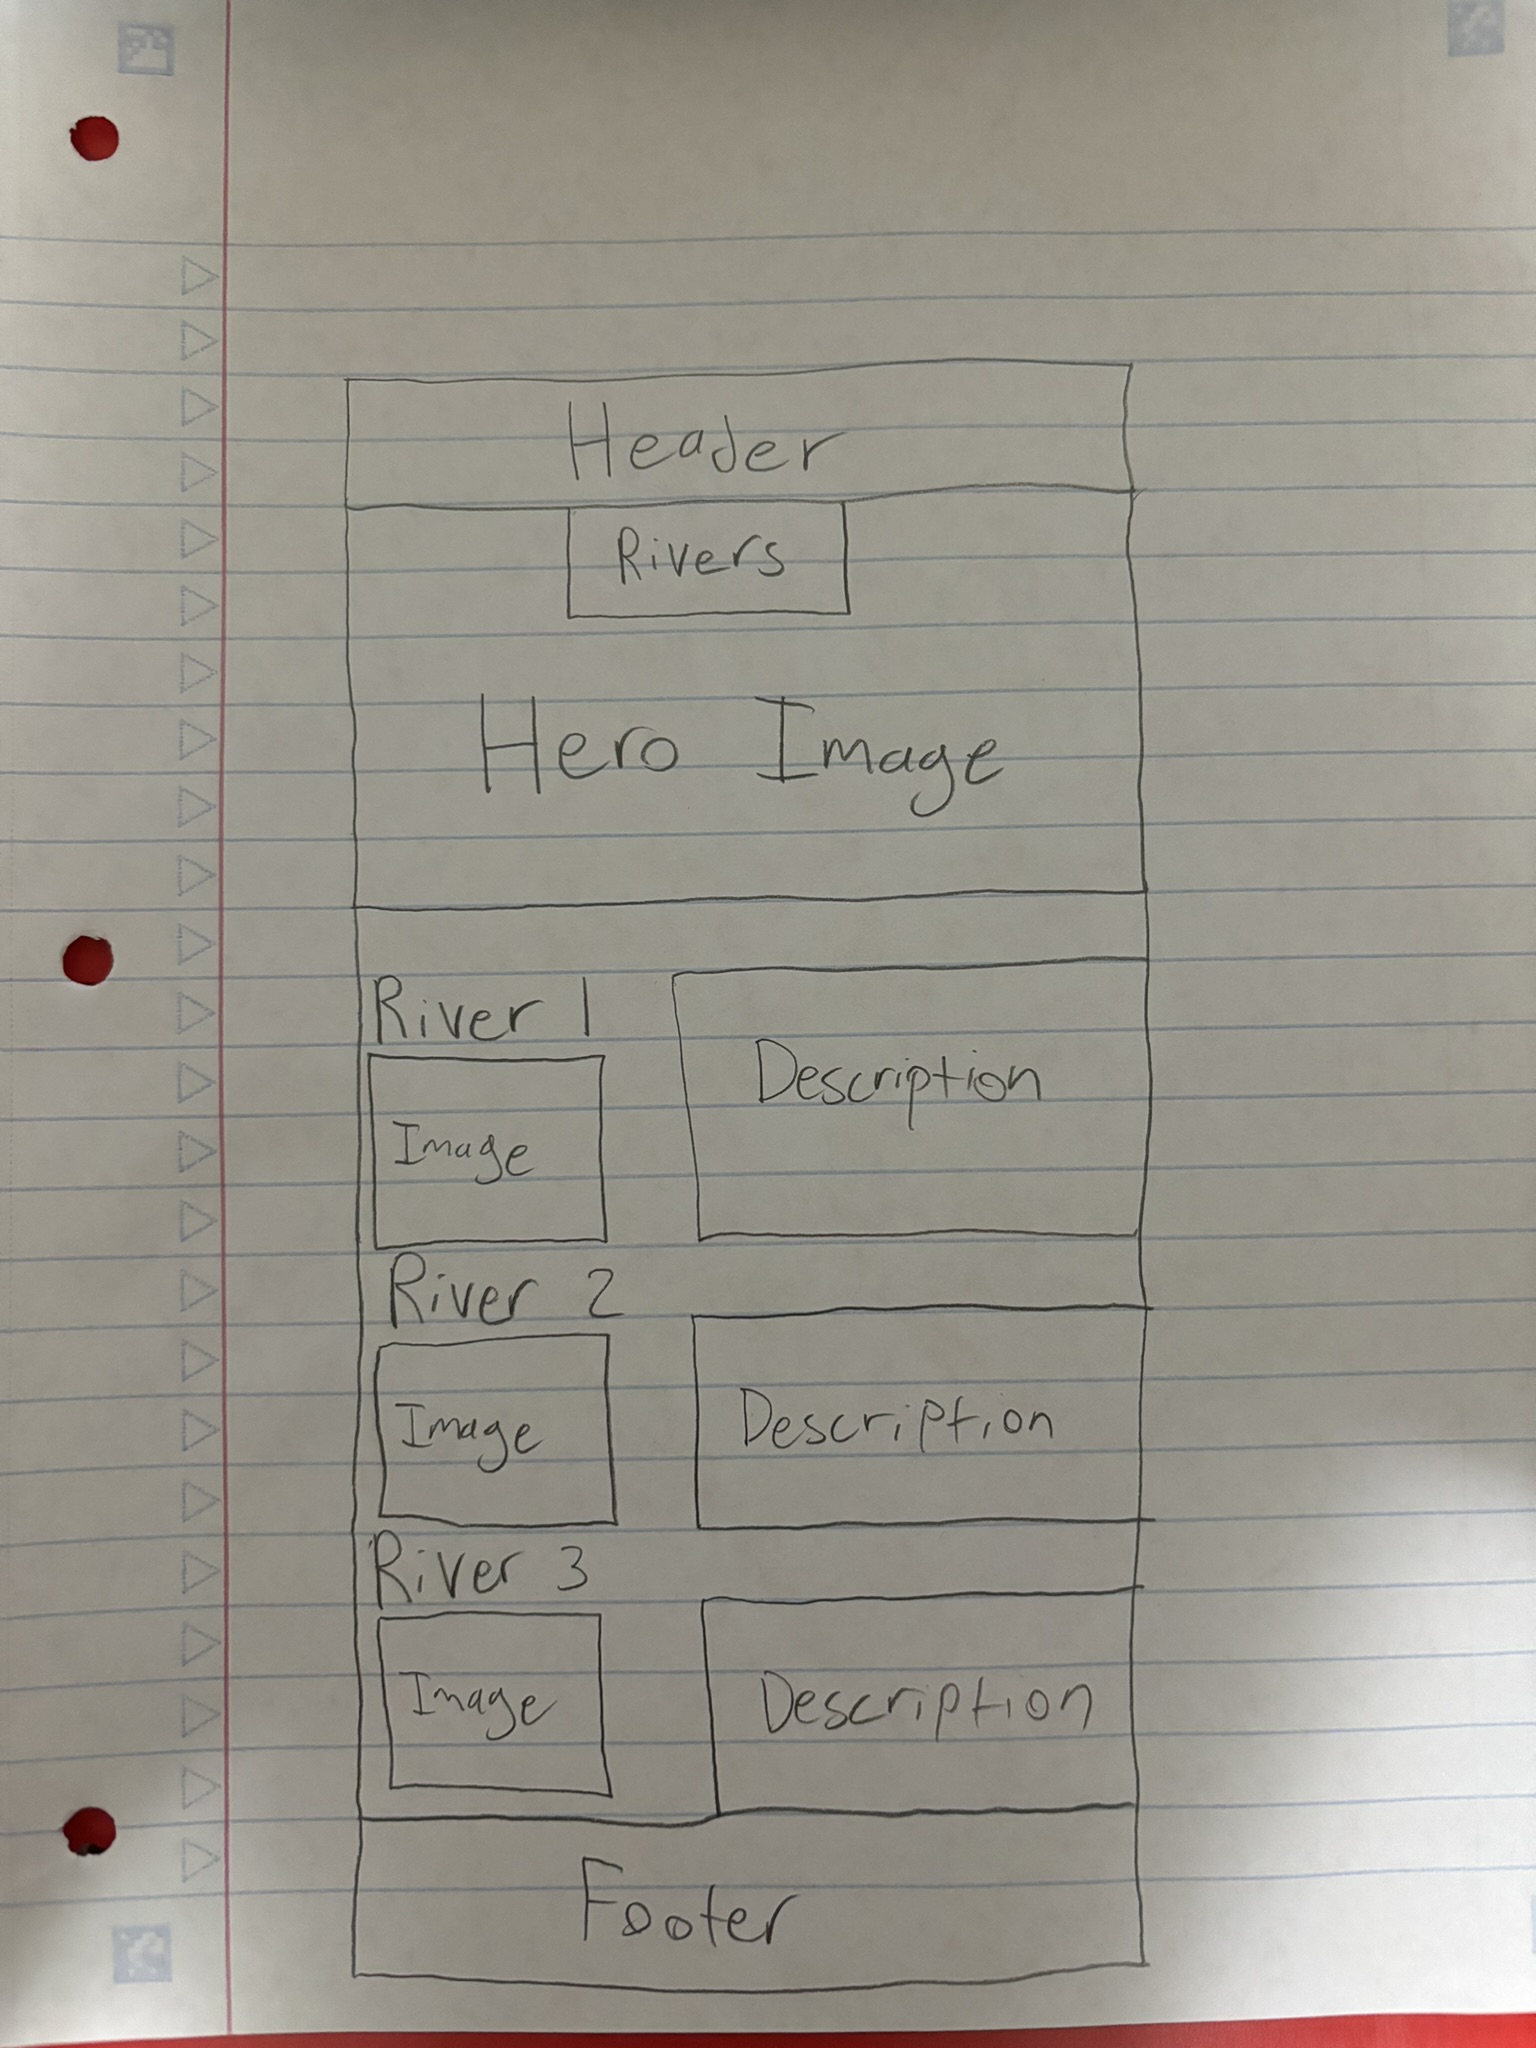 Header
Rivers
Hero Image
River 1
Image
Description
River 2
Image
Description
River 3
Image
Description
Footer